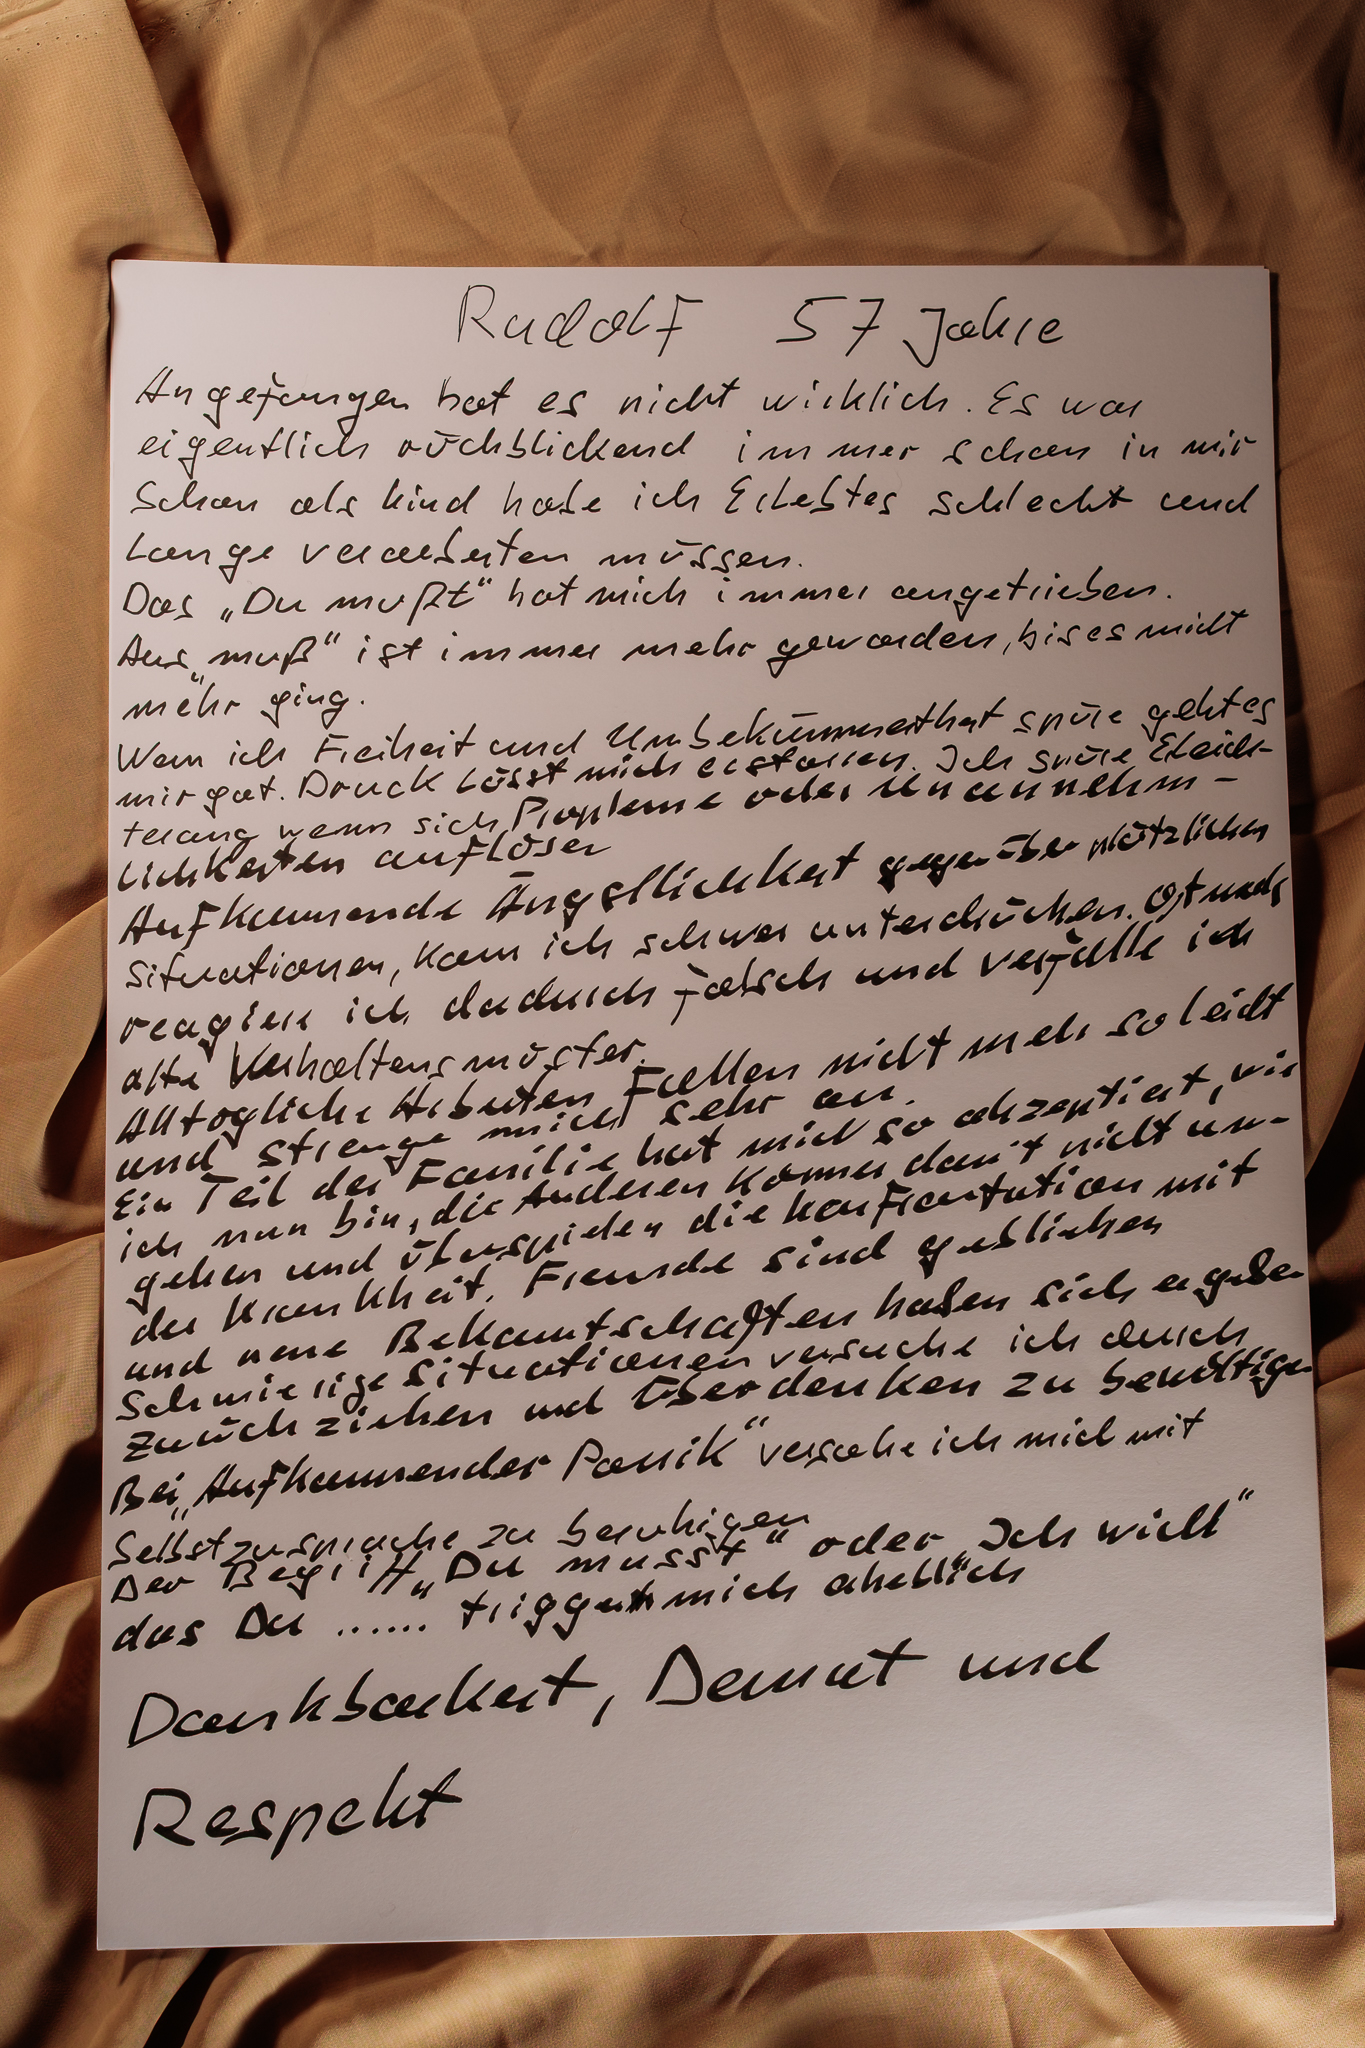 Rudolf 57 Jahre
Angefangen hat es nicht wirklich. Es war
eigentlich rückblickend immer schon in mir
Schon als Kind habe ich Erlebtes schlecht und
Lange verarbeiten müssen.
Das „Du mußt“ hat mich immer angetrieben.
Aus „muß“ ist immer mehr geworden, bis es nicht
mehr ging.
Wenn ich Freiheit und Unbekümmertheit spüre geht es
mir gut. Druck lässt mich erstarren. Ich spüre Erleich-
terung wenn sich Probleme oder Unannehm-
lichkeiten auflösen
Aufkommende Ängstlichkeit gegenüber plötzlichen
Situationen, kann ich schwer unterdrücken. Oft
reagiere ich dadurch falsch und verfalle ich
alte Verhaltensmuster.
Alltägliche Arbeiten Fallen nicht mehr so leicht
und strenge mich sehr an.
Ein Teil der Familie hat mich so akzeptiert, wie
ich nun bin, die Anderen können damit nicht um-
gehen und überspielen die Konfrontation mit
der Krankheit. Freunde sind geblieben
und neue Bekanntschaften haben sich ergeben
Schwierige Situationen versuche ich durch
zurück ziehen und Überdenken zu bewältigen
Bei „Aufkommender Panik“ versuche ich mich mit
Selbstzusprache zu beruhigen
Der Begriff „Du musst“ oder „Ich will“
das Du ...... triggert mich
Dankbarkeit, Demut und
Respekt